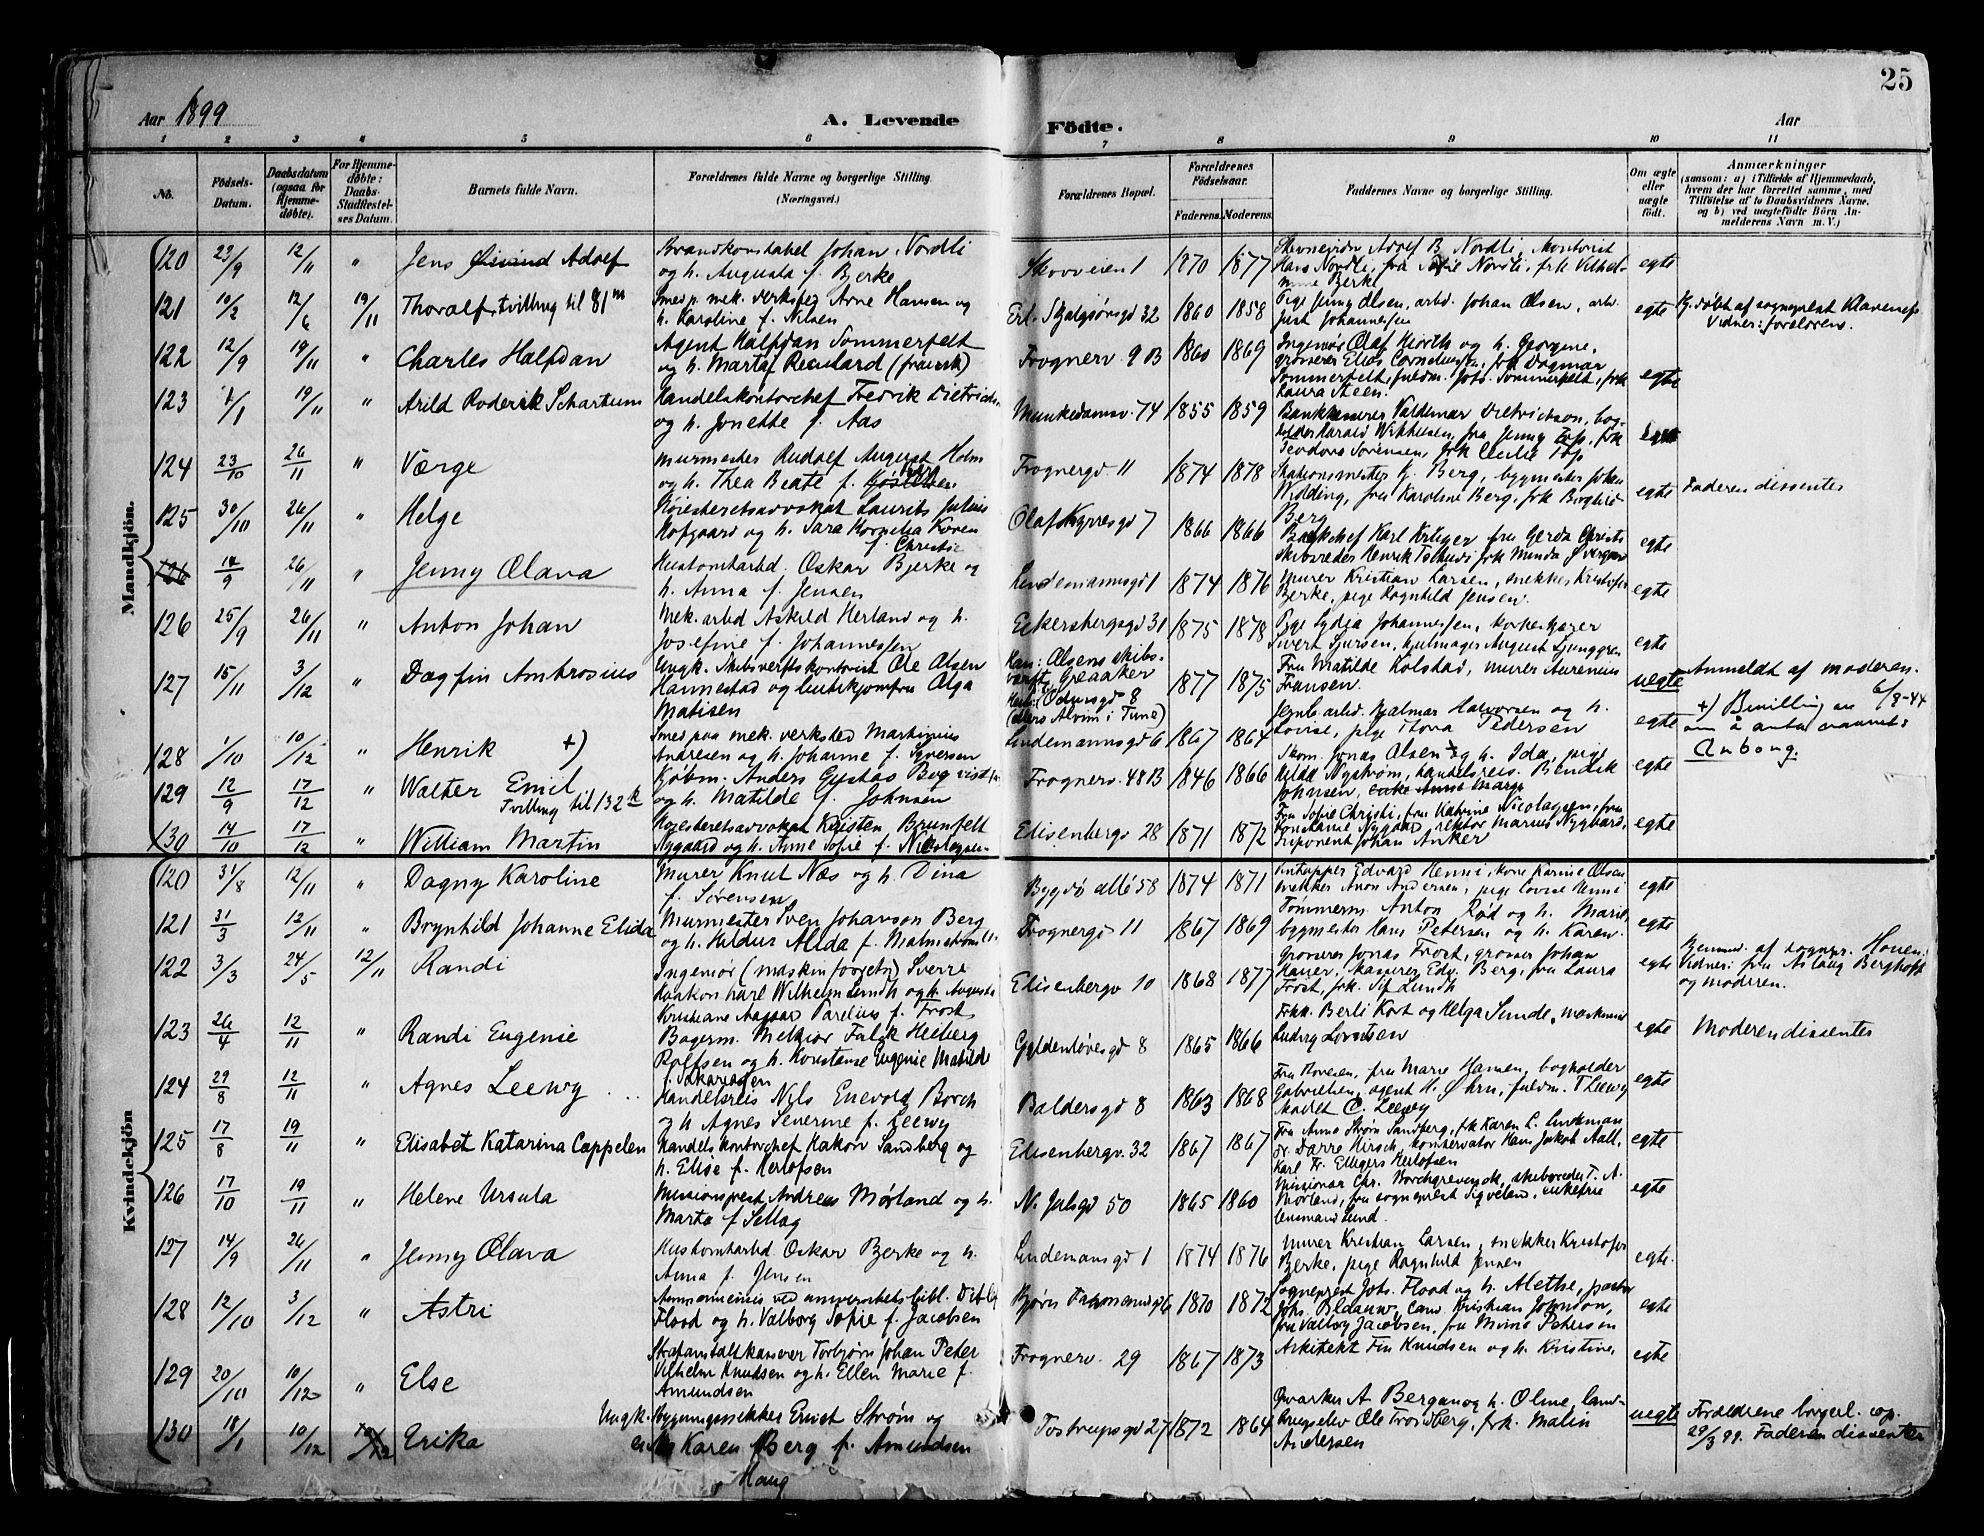 25
Aar 1899
A. Levende Födte.
Aar
1 2 3 4 5 6 7 8 9 10 11
No.
Födsels-Datum.
Daabsdatum (ogsaa for Hjemmedöbte).
For Hjemmedöbte: Daabs-Stadfæstelses Datum.
Barnets fulde Navn.
Forældrenes fulde Navne og borgerlige Stilling. (Næringsvei.)
Forældrenes Bopæl.
Forældrenes Födselsaar.
Faderens. Moderens.
Faddernes Navne og borgerlige Stilling.
Om ægte eller uægte födt.
Anmærkninger
(saasom: a) i Tilfælde af Hjemmedaab, hvem der har forrettet samme, med Tilföielse af to Daabsvidners Navne. og b) ved uegtefödte Börn Anmelderens Navn m. V.)
Mandkjön.
120 23/9 12/11 " Jens Øivind Adolf
Brandkonstabel Johan Nordli
og h. Augusta f. Berke
Skovveien 1 1870 1877
Hans Nordli, fru Sofie Nordli, frk Vilhelmine Berke
egte
121 10/2 12/6 19/11 Thoralf, tvilling til 81
Smed p. mek. verksted Arne Hansen og
h. Karoline f. Nilsen
Erl. Skjalgsönsgd 32 1860 1858
Pige Jenny Olsen, arb. Johan Olsen, arb.
Just Johannessen
egte
Hj. döbt af sogneprest Klaveness
Vidner: forældrene.
122 12/9 19/11 " Charles Halfdan
Agent Halfdan Sommerfelt
og h. Marta f. (fransk)
Frognerv. 9 B 1860 1869
Ingeniør Olaf Kiorth og h. Georgine,
grosserer Elias Corneliussen, fru Dagmar
Sommerfelt, fuldm. Johs. Sommerfelt, frk
Laura Steen.
egte
123 1/1 19/11 " Arild Roderik Schartum
Handelskontorchef Fredrik Dietrichson
og h. Jonette f. Aas
Munkedamsv. 74 1855 1859
Bankkasserer Valdemar Dietrichson, bogholder Harald Wilhelmsen, fru Jenny Top, frk
Teodora Sörensen, frk Cecilie Top
egte
124 23/10 26/11 " Værge
Murmester Rudolf August Holm
og h. Thea Beate f. Berg
Frognergd 11 1874 1878
Stationsmester Hj. Berg, bygmester Johan
Widding, fru Karoline Berg, frk Borghild
Berg
egte
Faderen dissenter
125 30/10 26/11 " Helge
Höiesteretsadvokat Laurits Julius
Hofgaard og h. Sara Kornelia Koren
f. Christie
Olaf Kyrresgd 7 1866 1866
Bankchef Karl Krüger fru Gerda Christie
Skibsreder Henrik Tschudi frk Munda
egte
126 14/9 26/11 " Jenny Olava
Kustomtarbd. Oskar Bjerke og
h. Anna f. Jensen
Lindemannsgd 1 1874 1876
Murer Kristian Larsen, snekker Kristofer
Berke, pige Ragnhild Jensen.
egte
126 25/9 26/11 " Anton Johan
Mek. arbd Askild Herland og h.
Josefine f. Johannessen
Eckersbergsgd 31 1875 1878
Pige Lydia Johannessen,
Sivert Sjursen, hjulmager August Ljunggren
egte
127 15/11 3/12 " Dagfin Ambrosius
Ungk. Skibsverftskontorist Ole Olsen
Hannestad og butikjomfru Olga
Matisen
Han: Olsens skibsverft, Greaaker
Hun: (Odinsgd 8
(ellers Alvim i Tune)
1877 1875
Fru Matilde Kolstad, murer Aurenius
Fransen.
uegte
Anmeldt af moderen.
128 1/10 10/12 " Henrik +)
Smed paa mek. verksted Martinius
Andresen og h. Johanne f. Syversen
Lindemannsgd 6 1867 1864
Jernb. arbd. Hjalmar Halvorsen og h.
Lovise, pige Hova Pedersen
egte
+) Bevilling av 6/9-44
om å anta navnet:
Anbong.
129 12/9 17/12 " Walter Emil
Tvilling til 132 k
Kjöbm. Anders Gustav Bogvist
og h. Matilde f. Johnsen
Frognerv. 48 B 1846 1866
Skom. Jonas Olsen og h. Ida, pige
Hylda Nyström, handelsreis. Bendik
Johnsen,
egte
130 14/10 17/12 " William Martin
Höiesteretsadvokat Kristen Brunfelt
Nygaard og h. Anne Sofie f. Nicolaysen
Elisenbergv 28 1871 1872
Fru Sofie Christi, fru Katrine Nicolaysen, fru
Konstanse Nygaard, rektor Marius Nygaard,
Johan Anker
egte
Kvindekjön
120 31/8 12/11 " Dagny Karoline
Murer Knut Næs og h. Dina
f. Sörensen
Bygdö allé 58 1874 1871
Edvard Henni, kone Karine Olsen
snekker Anon Andersen, pige Lovise Henni
egte
121 31/3 12/11 " Brynhild Johanne Elida
Murmester Sven Johanson Berg
og h. Huldur Alida f. Malmström
Frognergd 11 1867 1869
Tömmerm. Anton Röd og h. Marie,
bygmester Hans Petersen og h. Karen.
egte
122 3/3 24/5 12/11 Randi
Ingeniör (maskinforretn) Sverre
Haakon Karl Wilhelm Lundh og h. Augusta
Kristiane Aagaar Parelius f. Frost
Elisenbergv 10 1868 1877
Grosserer Jonas Frost, grosser Johan
Hauer, kasserer Edv. Berg, fru Laura
Frost, frk. Sif Lundh
egte
Hjemmed. af sognepr. Honen.
Vidner: fru Aslaug Berghoff
og moderen.
123 26/4 12/11 " Randi Eugenie
Bagerm. Melkior Falck Heiberg
Rolfsen og h. Konstanse Eugenie Matilde
f. Sakariassen
Gyldenlövesgd 8 1865 1866
Frkk. Berli Kort og Helga Sunde, maskinist
Ludvig Lorntsen
egte
Moderen dissenter
124 29/8 12/11 " Agnes Leewy
Handelsreis Nils Enevold Borch
og h Agnes Severine f. Leewy
Baldersgd 8 1863 1868
Fru Hoveien, fru Marie Hansen, bogholder
Gabrielsen, agent H. Öhrn, fuldm. T Leewy
Kadet C. Leewy
egte
125 17/8 19/11 " Elisabet Katarina Cappelen
Handelskontorchef Hakon Sandberg og
h. Elise f. Herlofsen
Elisenbergv. 32 1867 1867
Fru Anna Ström Sandberg, frk Karen L. Lindeman
Fr. Darre Hirsch, konservator Hans Jakob Aall,
Karl Fr. Elligers Herlofsen
egte
126 17/10 19/11 " Helene Ursula
Missionsprest Andreas Mörland og h.
Marta f Sellag
N. Julsgd 50 1865 1860
Missionær Chr. Borchgrevink, skibsreder T. A.
Mörland, fru sogneprest Sigveland, enkefrue
Lensmand Lund.
egte
127 14/9 26/11 " Jenny Olava
Kustomtarbd. Oskar Bjerke og h.
Anna f. Jensen
Lindemansgd 1 1874 1876
Murer Kristian Larsen, snekker Kristofer
Berke, pige Ragnhild Jensen
egte.
128 12/10 3/12 " Astri
Amanuensis ved universitetsbibl. Ditlef
Flood og h. Valborg Sofie f. Jacobsen
Björn Farmandsgd 6 1870 1872
Sogneprest Johs. Flood og h. Alethe, pastor
Johs. Bldauw, cand. Kristian Johnson,
fru Valborg Jacobsen, fru Mimi Petersen
egte
129 20/10 10/12 " Else
Strafanstaltkasserer Torbjörn Johan Peter
Vilhelm Knudsen og h. Ellen Marie f.
Amundsen
Frognerv. 29 1867 1873
Arkitekt Fin Knudsen og h. Kristine,
egte
130 18/1 10/12 Erika
Ungk. bygningssnekker Ernst Ström og
Karen Berg f. Amundsen
Haug
Tostrupsgd 27 1872 1864
A. Bergan og h. Oline, landbrugselev Ole Trondberg, frk. Malin
Andersen
uegte
Forældrene borgerl. cop.
29/3 99. Faderen dissenter